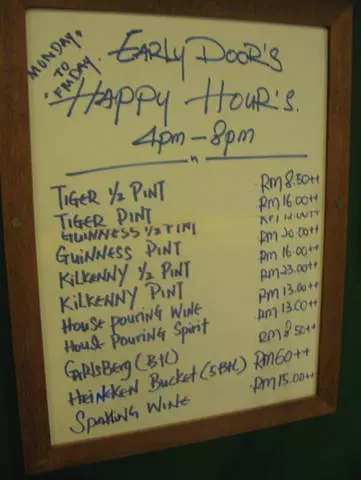 MONDAY
TO
FRIDAY
EARLY DOOR'S
HAPPY HOUR'S.
4pm – 8pm
TIGER 1/2 PINT RM 8.50++
TIGER PINT RM 16.00++
GUINNESS 1/2 PINT
GUINNESS PINT RM 20.00++
KILKENNY 1/2 PINT RM 16.00++
KILKENNY PINT RM 23.00++
House pouring Wine RM 13.00++
House Pouring Spirit RM 13.00++
CARLSBerg (BTL) RM 8.50++
HEINEKEN Bucket (5BTL) RM60++
SPAKLING WINE RM 15.00++